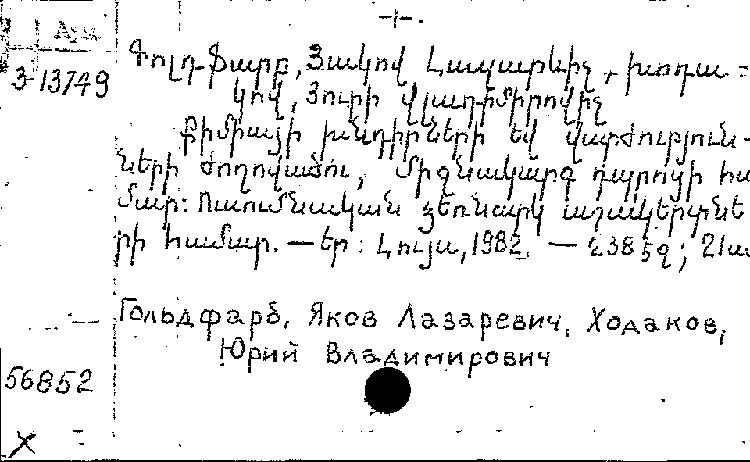 Արև
Գոլդֆարբ, Յակով Լազարևիչ, Խոդա=
Յ-13749
կով, Յուրի Վլադիմիրովիչ
Քիմիայի խնդիրների և վարժություն-
ների ժողովածու, միջնակարգ դպրոցի հա
մար: Ուսումնական ձեռնարկ աշակերտնե
րի համար. — Եր: Լույս, 1982. — 238 էջ; 21ս
Гольдфарб, Яков Лазаревич, Ходаков,
Юрий Владимирович
56852
X